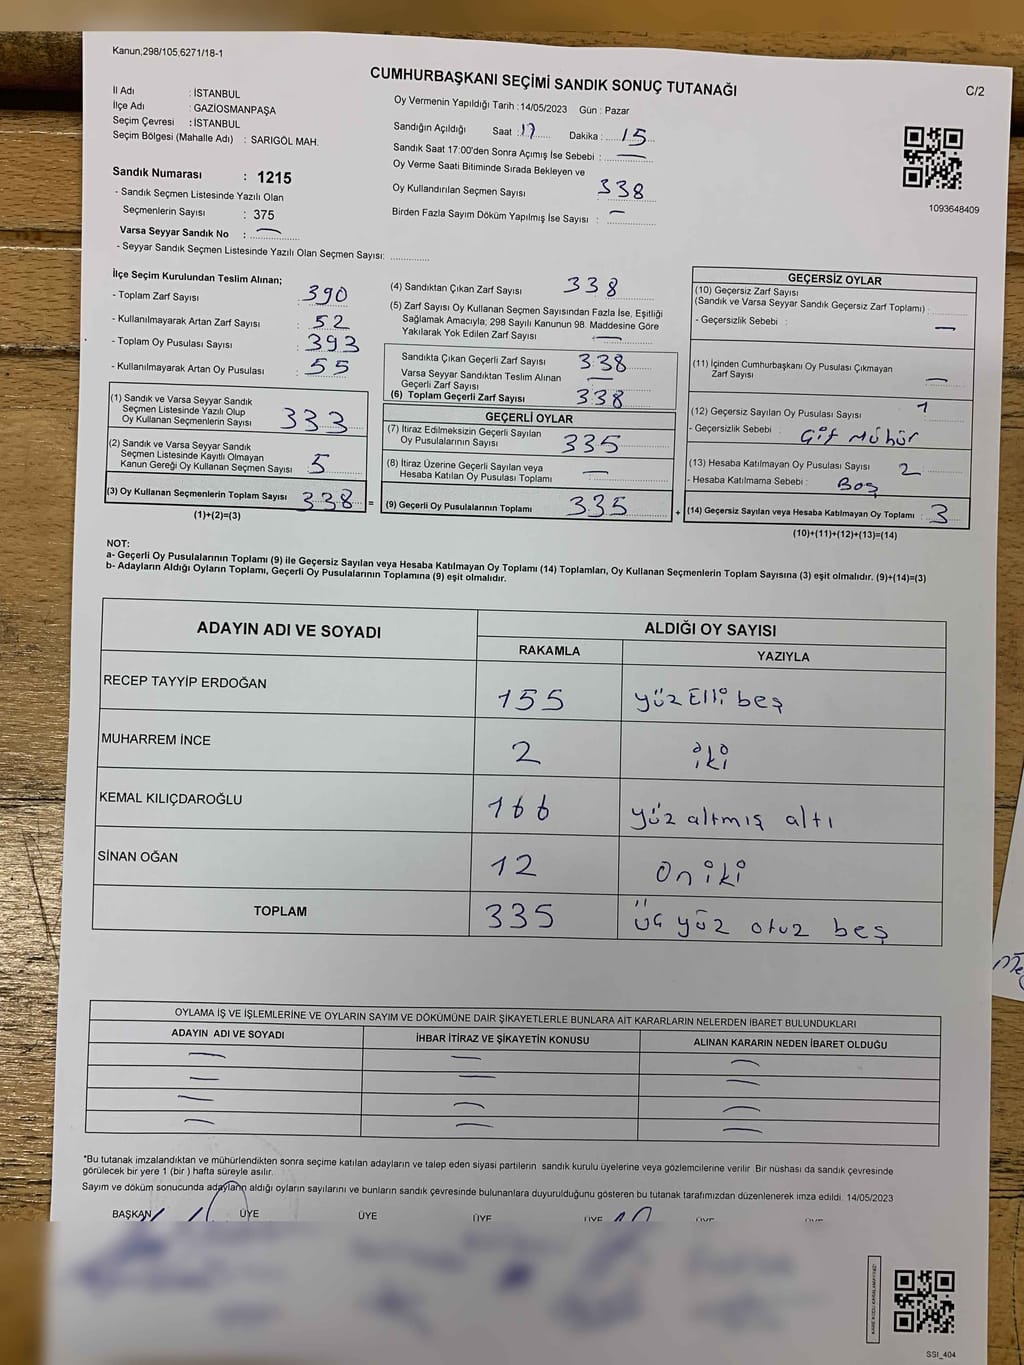 Kanun,298/105,6271/18-1
CUMHURBAŞKANI SEÇİMİ SANDIK SONUÇ TUTANAĞI
C/2
İl Adı : İSTANBUL
İlçe Adı : GAZİOSMANPAŞA
Seçim Çevresi : İSTANBUL
Seçim Bölgesi (Mahalle Adı) : SARIGÖL MAH.
Oy Vermenin Yapıldığı Tarih : 14/05/2023 Gün : Pazar
Sandığın Açıldığı Saat : 17 Dakika : 15
Sandık Saat 17:00'den Sonra Açımış İse Sebebi : —
Oy Verme Saati Bitiminde Sırada Bekleyen ve
Oy Kullandırılan Seçmen Sayısı 338
Birden Fazla Sayım Döküm Yapılmış İse Sayısı : —
1093648409
Sandık Numarası : 1215
- Sandık Seçmen Listesinde Yazılı Olan
Seçmenlerin Sayısı : 375
Varsa Seyyar Sandık No : —
- Seyyar Sandık Seçmen Listesinde Yazılı Olan Seçmen Sayısı:
İlçe Seçim Kurulundan Teslim Alınan;
- Toplam Zarf Sayısı : 390
- Kullanılmayarak Artan Zarf Sayısı : 52
- Toplam Oy Pusulası Sayısı : 393
- Kullanılmayarak Artan Oy Pusulası : 55
(1) Sandık ve Varsa Seyyar Sandık
Seçmen Listesinde Yazılı Olup
Oy Kullanan Seçmenlerin Sayısı 333
(2) Sandık ve Varsa Seyyar Sandık
Seçmen Listesinde Kayıtlı Olmayan
Kanun Gereği Oy Kullanan Seçmen Sayısı 5
(3) Oy Kullanan Seçmenlerin Toplam Sayısı 338 =
(1)+(2)=(3)
(4) Sandıktan Çıkan Zarf Sayısı 338
(5) Zarf Sayısı Oy Kullanan Seçmen Sayısından Fazla İse, Eşitliği
Sağlamak Amacıyla; 298 Sayılı Kanunun 98. Maddesine Göre
Yakılarak Yok Edilen Zarf Sayısı : —
Sandıkta Çıkan Geçerli Zarf Sayısı 338
Varsa Seyyar Sandıktan Teslim Alınan
Geçerli Zarf Sayısı —
(6) Toplam Geçerli Zarf Sayısı 338
GEÇERLİ OYLAR
(7) İtiraz Edilmeksizin Geçerli Sayılan
Oy Pusulalarının Sayısı 335
(8) İtiraz Üzerine Geçerli Sayılan veya
Hesaba Katılan Oy Pusulası Toplamı —
(9) Geçerli Oy Pusulalarının Toplamı 335 +
GEÇERSİZ OYLAR
(10) Geçersiz Zarf Sayısı
(Sandık ve Varsa Seyyar Sandık Geçersiz Zarf Toplamı) :
- Geçersizlik Sebebi : —
(11) İçinden Cumhurbaşkanı Oy Pusulası Çıkmayan
Zarf Sayısı —
(12) Geçersiz Sayılan Oy Pusulası Sayısı 1
- Geçersizlik Sebebi : Çift Mühür
(13) Hesaba Katılmayan Oy Pusulası Sayısı 2
- Hesaba Katılmama Sebebi : Boş
(14) Geçersiz Sayılan veya Hesaba Katılmayan Oy Toplamı : 3
(10)+(11)+(12)+(13)=(14)
NOT:
a- Geçerli Oy Pusulalarının Toplamı (9) ile Geçersiz Sayılan veya Hesaba Katılmayan Oy Toplamı (14) Toplamları, Oy Kullanan Seçmenlerin Toplam Sayısına (3) eşit olmalıdır. (9)+(14)=(3)
b- Adayların Aldığı Oyların Toplamı, Geçerli Oy Pusulalarının Toplamına (9) eşit olmalıdır.
ADAYIN ADI VE SOYADI ALDIĞI OY SAYISI
RAKAMLA YAZIYLA
RECEP TAYYİP ERDOĞAN 155 yüz Elli beş
MUHARREM İNCE 2 iki
KEMAL KILIÇDAROĞLU 166 yüz altmış altı
SİNAN OĞAN 12 On iki
TOPLAM 335 üç yüz otuz beş
OYLAMA İŞ VE İŞLEMLERİNE VE OYLARIN SAYIM VE DÖKÜMÜNE DAİR ŞİKAYETLERLE BUNLARA AİT KARARLARIN NELERDEN İBARET BULUNDUKLARI
ADAYIN ADI VE SOYADI İHBAR İTİRAZ VE ŞİKAYETİN KONUSU ALINAN KARARIN NEDEN İBARET OLDUĞU
— — —
— — —
— — —
— — —
*Bu tutanak imzalandıktan ve mühürlendikten sonra seçime katılan adayların ve talep eden siyasi partilerin sandık kurulu üyelerine veya gözlemcilerine verilir .Bir nüshası da sandık çevresinde
görülecek bir yere 1 (bir ) hafta süreyle asılır.
Sayım ve döküm sonucunda adayların aldığı oyların sayılarını ve bunların sandık çevresinde bulunanlara duyurulduğunu gösteren bu tutanak tarafımızdan düzenlenerek imza edildi. 14/05/2023
BAŞKAN ÜYE ÜYE ÜYE ÜYE ÜYE ÜYE
SSI_404